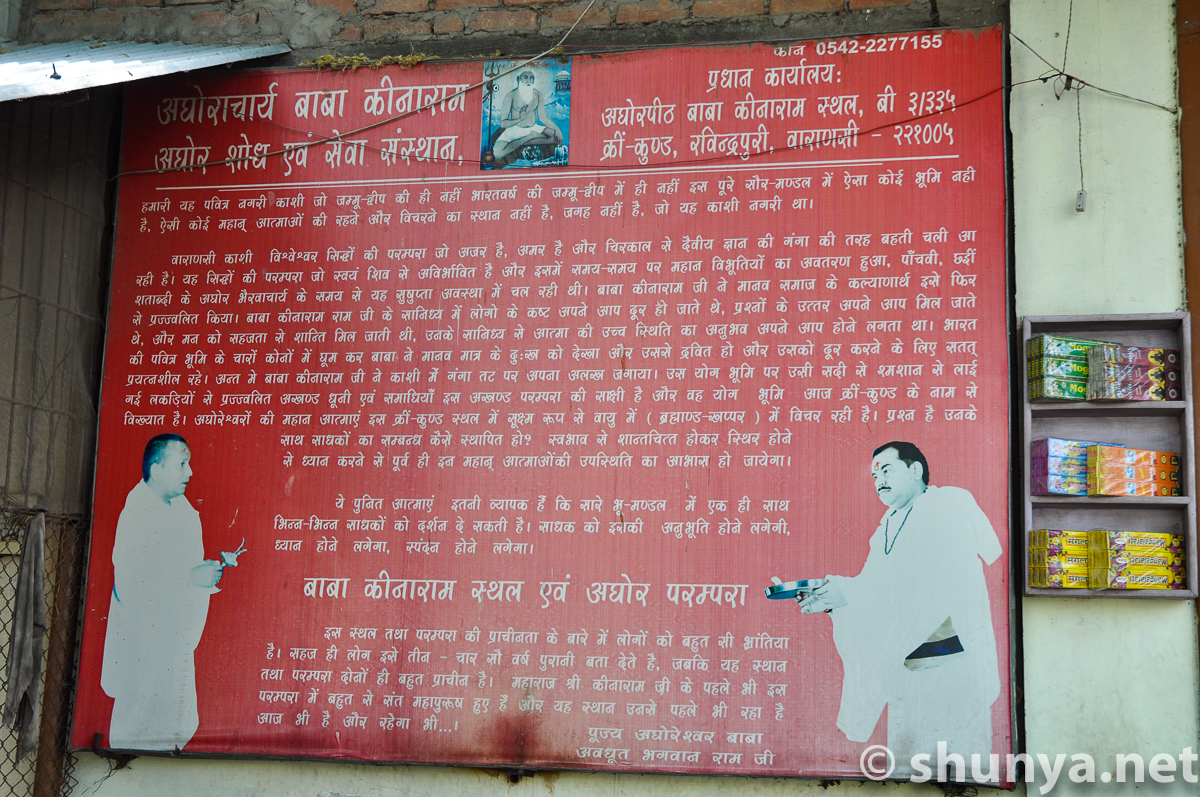 फोन 0542-2277155
अघोराचार्य बाबा कीनाराम
अघोर शोध एवं सेवा संस्थान,
प्रधान कार्यालय:
अघोरपीठ बाबा कीनाराम स्थल, बी ३/३३५
क्रीं-कुण्ड, रविन्द्रपुरी, वाराणसी - २२१००५
हमारी यह पवित्र नगरी काशी जो जम्मू-द्वीप की ही नहीं भारतवर्ष की जम्मू-द्वीप में ही नहीं इस पूरे सौर-मण्डल में ऐसा कोई भूमि नही
है, ऐसी कोई महान् आत्माओं की रहने और विचरने का स्थान नहीं है, जगह नहीं है, जो यह काशी नगरी था।
वाराणसी काशी विश्वेश्वर सिद्धों की परम्परा जो अजर है, अमर है और चिरकाल से दैवीय ज्ञान की गंगा की तरह बहती चली आ
रही है। यह सिद्धों की परम्परा जो स्वयं शिव से अविर्भावित है और इसमें समय-समय पर महान विभूतियों का अवतरण हुआ, पाँचवी, छठीं
शताब्दी के अघोर भैरवाचार्य के समय से यह सुषुप्ता अवस्था में चल रही थी। बाबा कीनाराम जी ने मानव समाज के कल्याणार्थ इसे फिर
से प्रज्ज्वलित किया। बाबा कीनाराम राम जी के सानिध्य में लोगो के कष्ट अपने आप दूर हो जाते थे, प्रश्नों के उत्तर अपने आप मिल जाते
थे, और मन को सहजता से शान्ति मिल जाती थी, उनके सानिध्य से आत्मा की उच्च स्थिति का अनुभव अपने आप होने लगता था। भारत
की पवित्र भूमि के चारों कोनों में घूम कर बाबा ने मानव मात्र के दुःख को देखा और उससे द्रवित हो और उसको दूर करने के लिए सतत्
प्रयत्नशील रहे। अन्त मे बाबा कीनाराम जी ने काशी में गंगा तट पर अपना अलख जगाया। उस योग भूमि पर उसी सदी से श्मशान से लाई
गई लकड़ियों से प्रज्ज्वलित अखण्ड धूनी एवं समाधियाँ इस अखण्ड परम्परा की साक्षी है और वह योग भूमि आज क्रीं-कुण्ड के नाम से
विख्यात है। अघोरेश्वरों की महान आत्माएं इस क्रीं-कुण्ड स्थल में सूक्ष्म रूप से वायु में ( ब्रह्माण्ड-खप्पर ) में विचर रही है। प्रश्न है उनके
साथ साधकों का सम्बन्ध कैसे स्थापित हो? स्वभाव से शान्तचित्त होकर स्थिर होने
से ध्यान करने से पूर्व ही इन महान् आत्माओंकी उपस्थिति का आभास हो जायेगा।
ये पुनित आत्माएं इतनी व्यापक हैं कि सारे भू-मण्डल में एक ही साथ
भिन्न-भिन्न साधकों को दर्शन दे सकती है। साधक को इसकी अनुभूति होने लगेगी,
ध्यान होने लगेगा, स्पंदन होने लगेगा।
बाबा कीनाराम स्थल एवं अघोर परम्परा
इस स्थल तथा परम्परा की प्राचीनता के बारे में लोगों को बहुत सी भ्रांतिया
है। सहज ही लोग इसे तीन - चार सौ वर्ष पुरानी बता देते है, जबकि यह स्थान
तथा परम्परा दोनों ही बहुत प्राचीन है। महाराज श्री कीनाराम जी के पहले भी इस
परम्परा में बहुत से संत महापुरूष हुए हैं और यह स्थान उनसे पहले भी रहा है
आज भी है और रहेगा भी...।
पूज्य अघोरेश्वर बाबा
अवधूत भगवान राम जी
© shunya.net